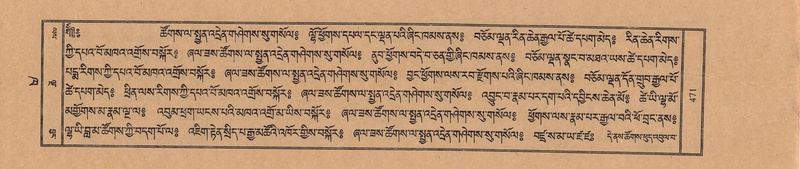 ༄༅། ཚོགས་ལ་སྤྱན་འདྲེན་གཤེགས་སུ་གསོལ༔ ལྷོ་ཕྱོགས་དཔལ་དང་ལྡན་པའི་ཞིང་ཁམས་ནས༔ བཅོམ་ལྡན་རིན་ཆེན་རྒྱལ་པོ་ཚེ་དཔག་མེད༔ རིན་ཆེན་རིགས་
ཀྱི་དཔའ་བོ་མཁའ་འགྲོས་བསྐོར༔ ཞལ་ཟས་ཚོགས་ལ་སྤྱན་འདྲེན་གཤེགས་སུ་གསོལ༔ ནུབ་ཕྱོགས་བདེ་བ་ཅན་གྱི་ཞིང་ཁམས་ནས༔ བཅོམ་ལྡན་སྣང་བ་མཐའ་ཡས་ཚེ་དཔག་མེད༔
པདྨ་རིགས་ཀྱི་དཔའ་བོ་མཁའ་འགྲོས་བསྐོར༔ ཞལ་ཟས་ཚོགས་ལ་སྤྱན་འདྲེན་གཤེགས་སུ་གསོལ༔ བྱང་ཕྱོགས་ལས་རབ་རྫོགས་པའི་ཞིང་ཁམས་ནས༔ བཅོམ་ལྡན་དོན་གྲུབ་རྒྱལ་པོ་
ཚེ་དཔག་མེད༔ ཕྲིན་ལས་རིགས་ཀྱི་དཔའ་བོ་མཁའ་འགྲོས་བསྐོར༔ ཞལ་ཟས་ཚོགས་ལ་སྤྱན་འདྲེན་གཤེགས་སུ་གསོལ༔ འབྱུང་བ་རྣམ་པར་དག་པའི་དབྱིངས་ཆེན་མོ༔ ཚེ་ཡི་ལྷ་མོ་
མགྱོགས་མ་རྣམ་ལྔ་ལ༔ འབུམ་ཕྲག་ཡངས་པའི་མཁའ་འགྲོ་མ་ཡིས་བསྐོར༔ ཞལ་ཟས་ཚོགས་ལ་སྤྱན་འདྲེན་གཤེགས་སུ་གསོལ༔ ཕྱོགས་ལས་རྣམ་པར་རྒྱལ་བའི་ཕོ་བྲང་ནས༔
ལྷ་ཡི་བླ་མ་ཚོགས་ཀྱི་བདག་པོ་ལ༔ འཇིག་རྟེན་སྲིད་པ་རྒྱ་མཚོའི་འཁོར་གྱིས་བསྐོར༔ ཞལ་ཟས་ཚོགས་ལ་སྤྱན་འདྲེན་གཤེགས་སུ་གསོལ༔ བཛྲ་ས་མ་ཡ་ཛཿཛཿ དེ་ནས་ཚོགས་ཕུད་འབུལ་བ་
471